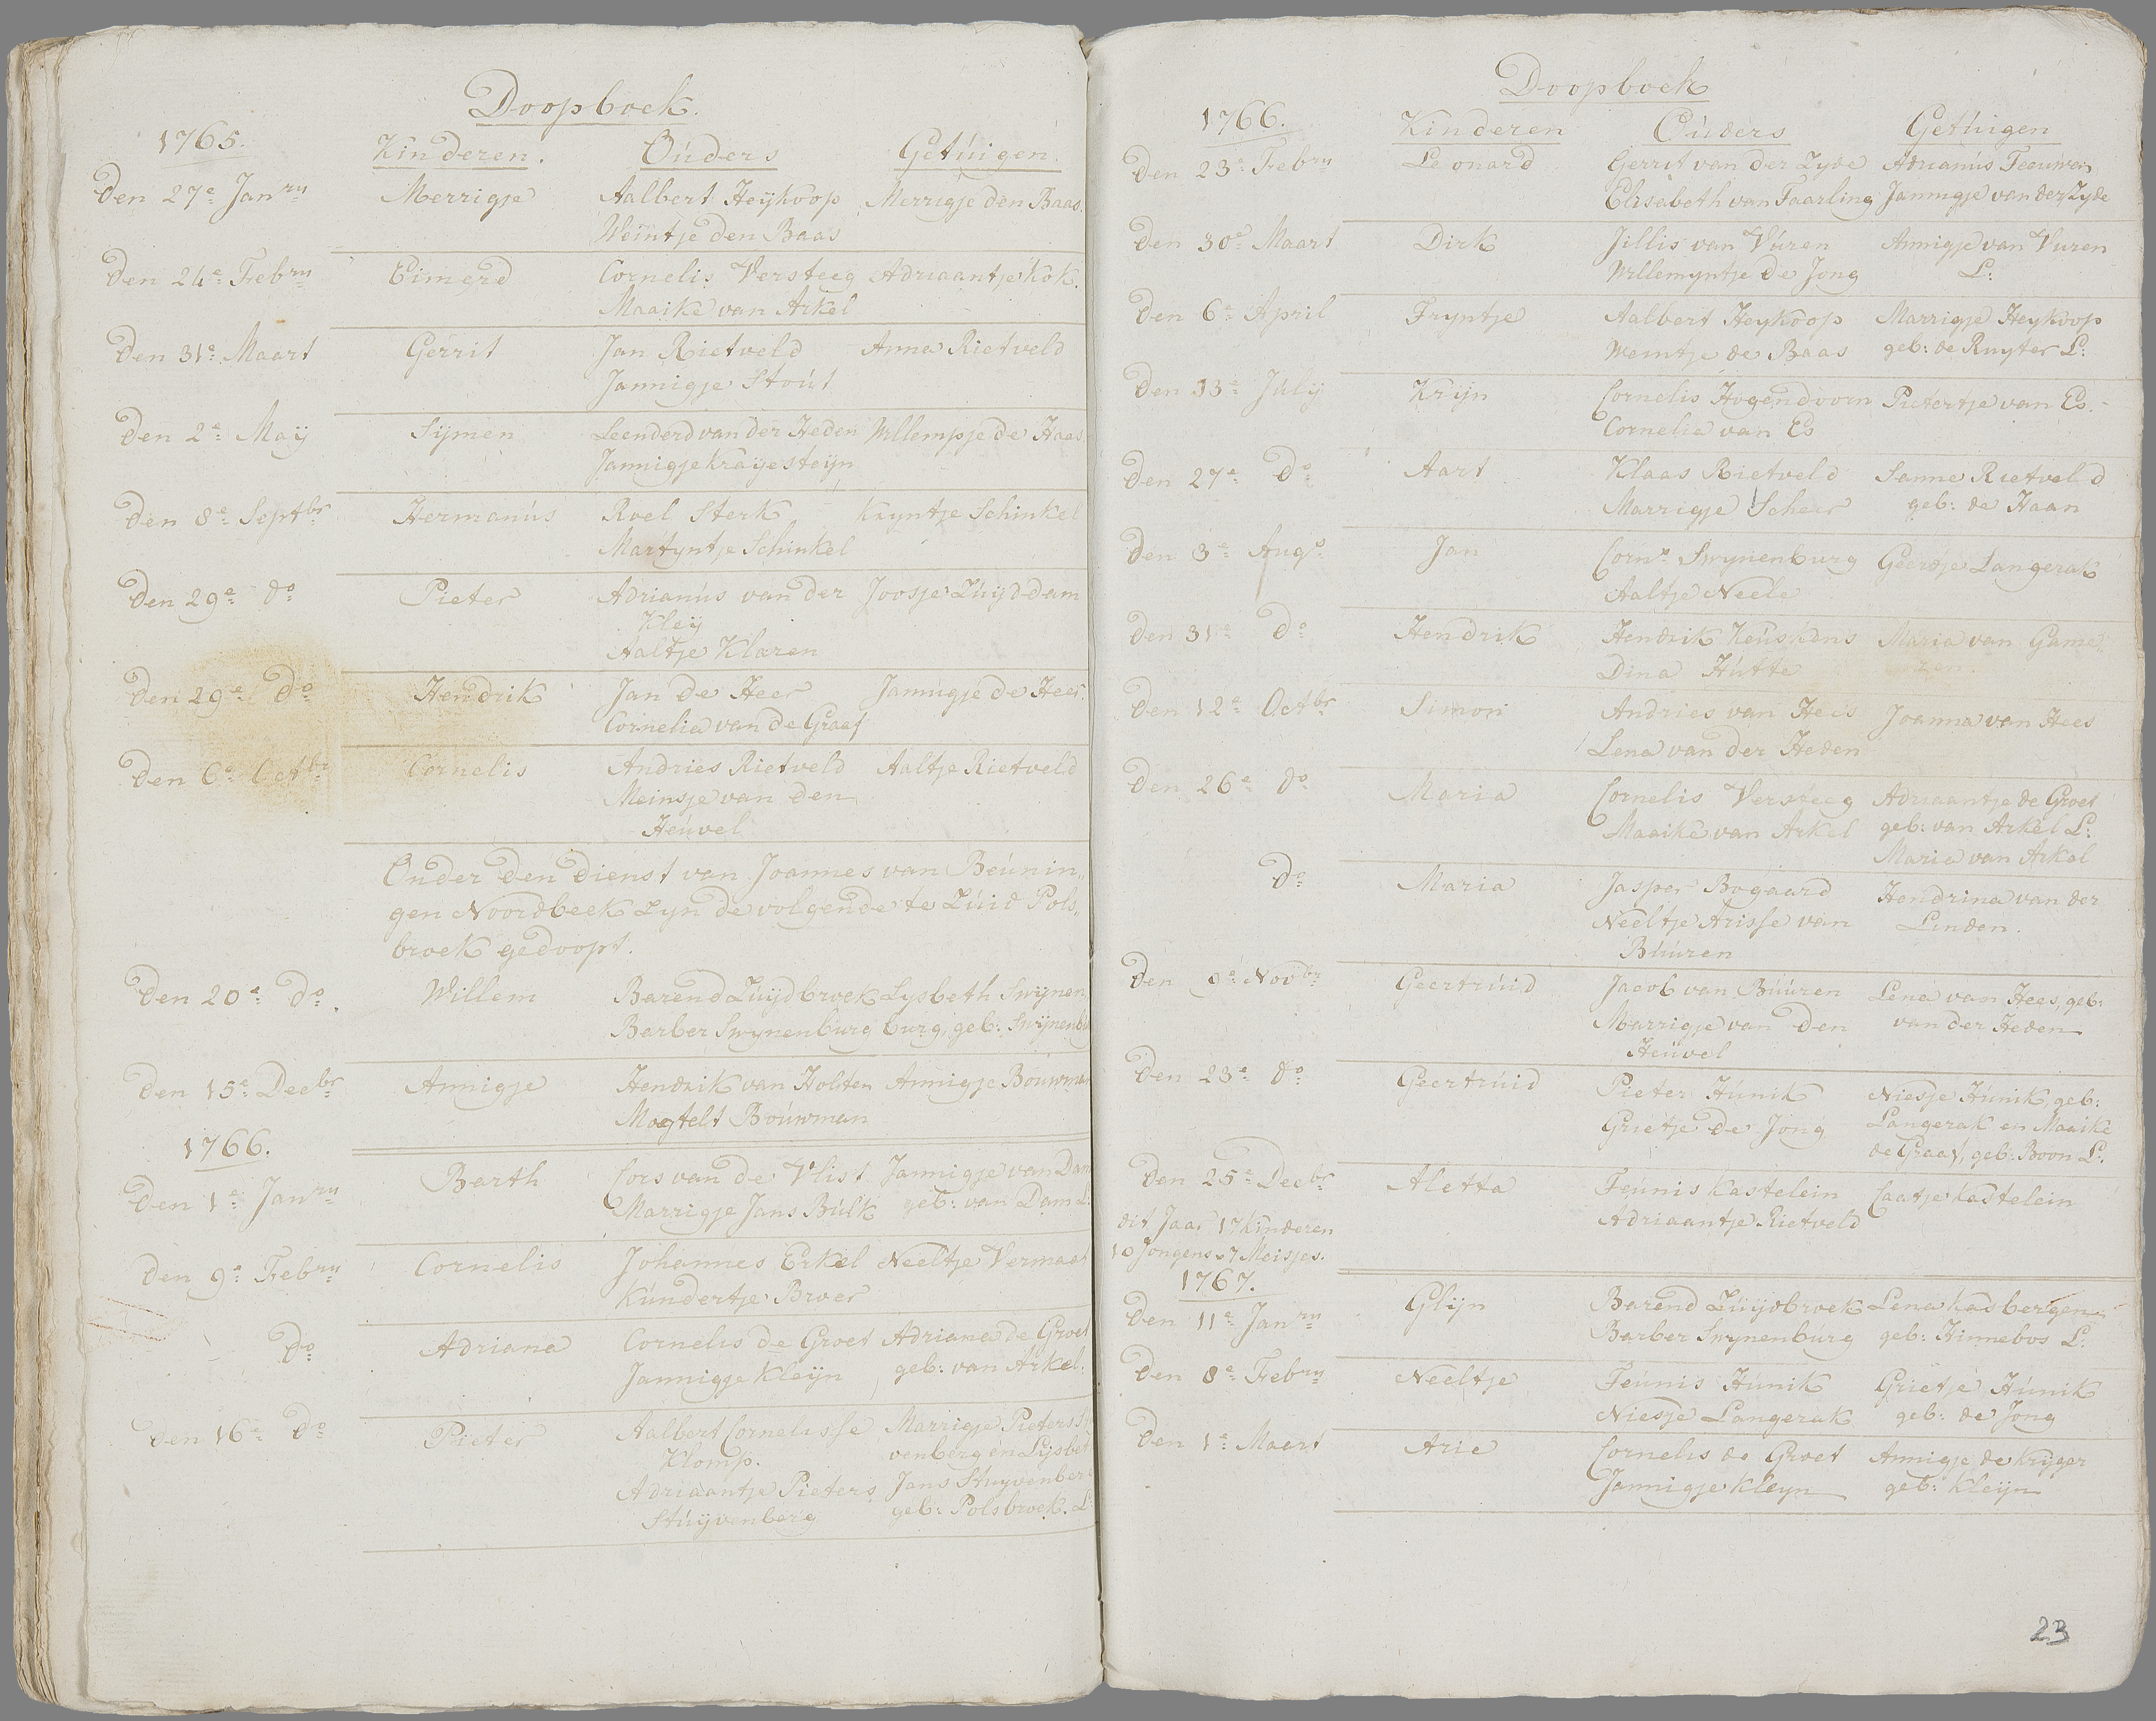 Doopboek.
1765. Kinderen. Ouders Getuigen.
Den 27e Janry Merrigje Aalbert Heykoop Merrigje den Baas.
Weintje den Baas
Den 24e Febry Eimerd Cornelis Versteeg Adriaantje Kok.
Maaike van Arkel
Den 31e Maart Gerrit Jan Rietveld Anna Rietveld
Jannigje Stout
Den 2e Maÿ Sijmen Leenderd van der Heden Willempje de Haas
Jannigje Kraijesteijn
Den 8e Septbr Hermanus Roel Sterk Kryntje Schinkel
Martyntje Schinkel
Den 29e do Pieter Adrianus van der Joosje Zuijddam
Kleij
Aaltje Klaren
Den 29e do Hendrik Jan de Heer Jannigje de Heer.
Cornelia van de Graaf
Den 6e Octbr Cornelis Andries Rietveld Aaltje Rietveld
Meinsje van den
Heuvel
Onder den dienst van Joannes van Beunin„
gen Noordbeek Zyn de volgende te Zuid Pols„
broek gedoopt.
Den 20e do. Willem Barend Zuijdbroek Lysbeth Swynen
Barber Swynenburg burg, geb: Swijnenb
Den 15e Decbr Annigje Hendrik van Holten Annigje Bouwman
Magtelt Bouwman
1766.
Den 1e Janry Barth Cors van de Vlist Jannigje van Dam
Marrigje Jans Bulk geb: van Dam L:
Den 9e Febry Cornelis Johannes Erkel Neeltje Vermaat
Kundertje Broer
do Adriana Cornelis de Groet Adriana de Groet
Jannigje Kleijn geb: van Arkel.
Den 16e do Pieter Aalbert Cornelisse Marrigje Pieters
Klomp. venberg en Lijsbet
Adriaantje Pieters Jans Stuyvenberg
Stuijvenberg geb: Polsbroek. L:
Doopboek
1766. Kinderen Ouders Getuigen
Den 23e Febry Leonard Gerrit van der Zyde Adrianus Teeuwen
Elisabeth van Taarling Jannigje van der Zyde
Den 30e Maart Dirk Jillis van Vuren Annigje van Vuren
Willemyntje de Jong L:
Den 6e April Tryntje Aalbert Heykoop Marrigje Heykoop
Weintje de Baas geb: de Ruyter L:
Den 13e July Krijn Cornelis Hogendoorn Pietertje van Es.
Cornelia van Es
Den 27e do Aart Klaas Rietveld Sanne Rietveld
Marrigje Scheer geb: de Haan
Den 3e Augo Jan Corns Swynenburg Geertje Langerak
Aaltje Neele
Den 31e do Hendrik Hendrik Keuskens Maria van Game„
Dina Hutte ren
Den 12e Octbr Simon Andries van Hees Joanna van Hees
Lena van der Heden
Den 26e do Maria Cornelis Versteeg Adriaantje de Groet
Maaike van Arkel geb: van Arkel L:
Maria van Arkel
do Maria Jasper Bogaard Hendrina van der
Neeltje Arisse van Linden.
Buuren
Den 9e Novbr Geertruid Jacob van Buuren Lena van Hees, geb:
Marrigje van den van der Heden
Heuvel
Den 23e do Geertruid Pieter Hunik Niesje Hunik geb:
Grietje de Jong Langerak en Maaike
de Graaf, geb: Boon L:
Den 25e Decbr Aletta Teunis Kastelein Caatje Kastelein
Adriaantje Rietveld
dit Jaar 17 Kinderen
10 Jongens 7 Meisjes.
1767.
Den 11e Janry Glijn Barend Zuijdbroek Lena Kasbergen
Barber Swynenburg geb: Hinnebos L:
Den 8e Febry Neeltje Teunis Hunik Grietje Hunik
Niesje Langerak geb: de Jong
Den 1e Maart Arie Cornelis de Groet Annigje de Kryger
Jannigje Kleyn geb: Kleijn
23